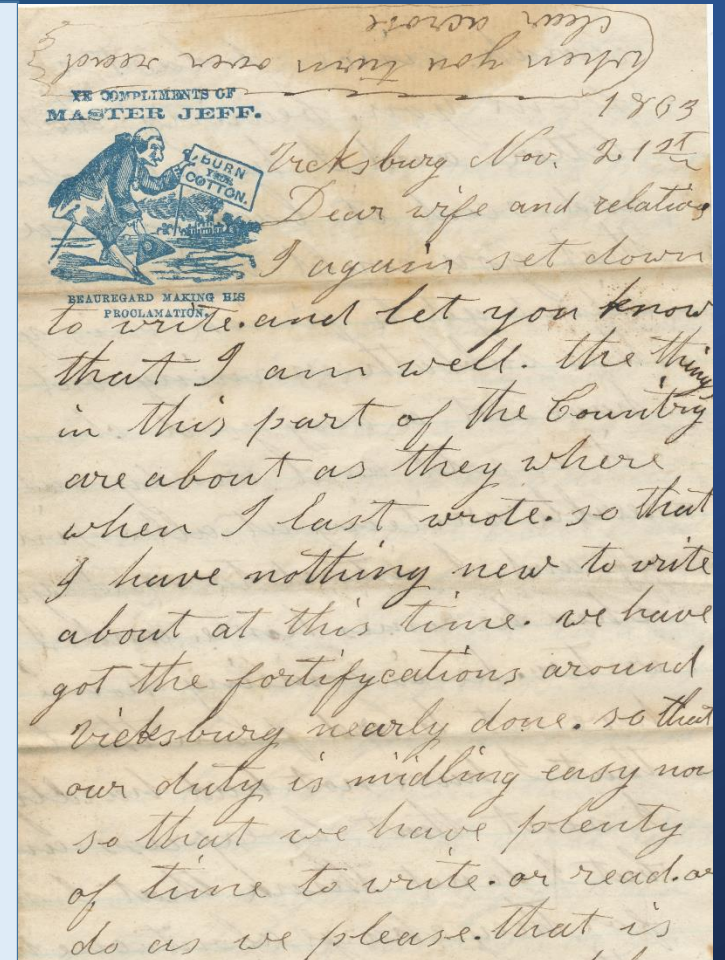 (when you turn over read
clear across
YE COMPLIMENTS OF
MASTER JEFF.
BURN
YOUR
COTTON.
BEAUREGARD MAKING HIS
PROCLAMATION.
1863
Vicksburg Nov. 21st
Dear wife and relations
I again set down
to write. and let you know
that I am well. the things
in this part of the Country
are about as they where
when I last wrote. so that
I have nothing new to write
about at this time. we have
got the fortifycations around
Vicksburg nearly done. so that
our duty is midling easy now
so that we have plenty
of time to write. or read. or
do as we please. that is